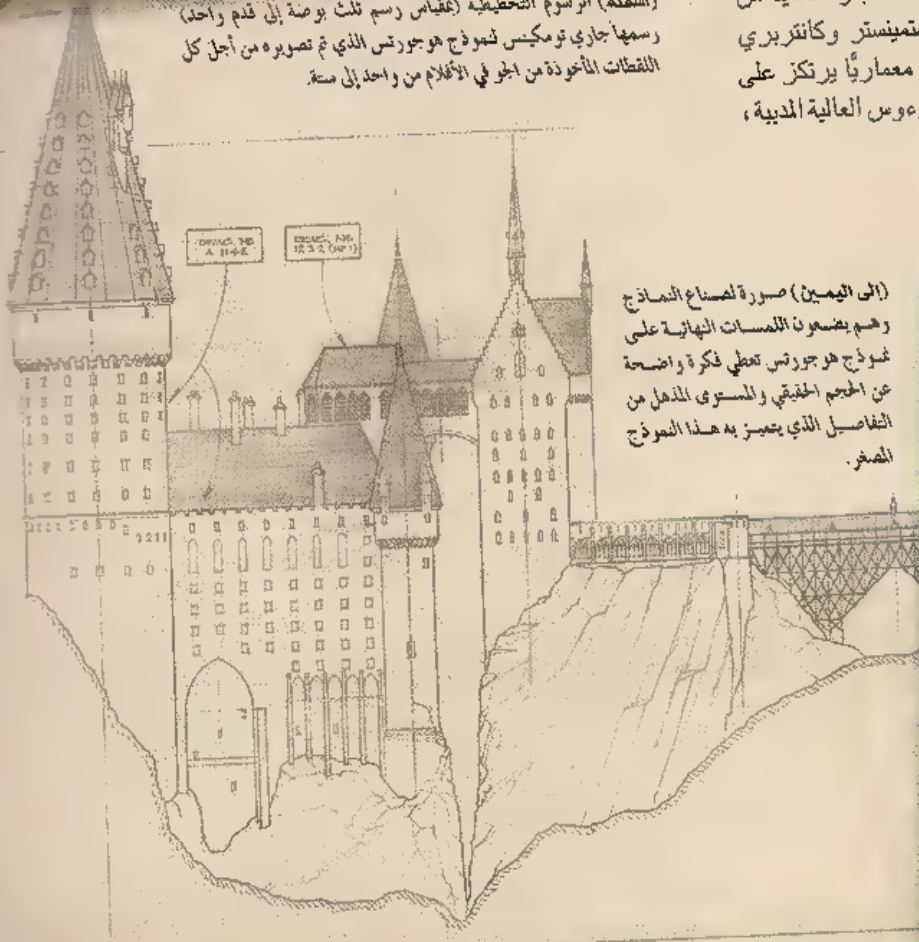 (أسفله) الرسوم التخطيطية (بمقياس رسم ثلث بوصة إلى قدم واحد)
رسمها جاري تومكينس لنموذج هوجورتس الذي تم تصويره من أجل كل
اللقطات المأخوذة من الجو في الأفلام من واحد إلى ستة.
ستمينستر وكانتربري
معماريًّا يرتكز على
رءوس العالية المدببة،
(إلى اليمين) صورة لصناع النماذج
وهم يضعون اللمسات النهائية على
نموذج هوجورتس تعطي فكرة واضحة
عن الحجم الحقيقي والمستوى المذهل من
التفاصيل الذي يتميز به هذا النموذج
المصغر.
3211